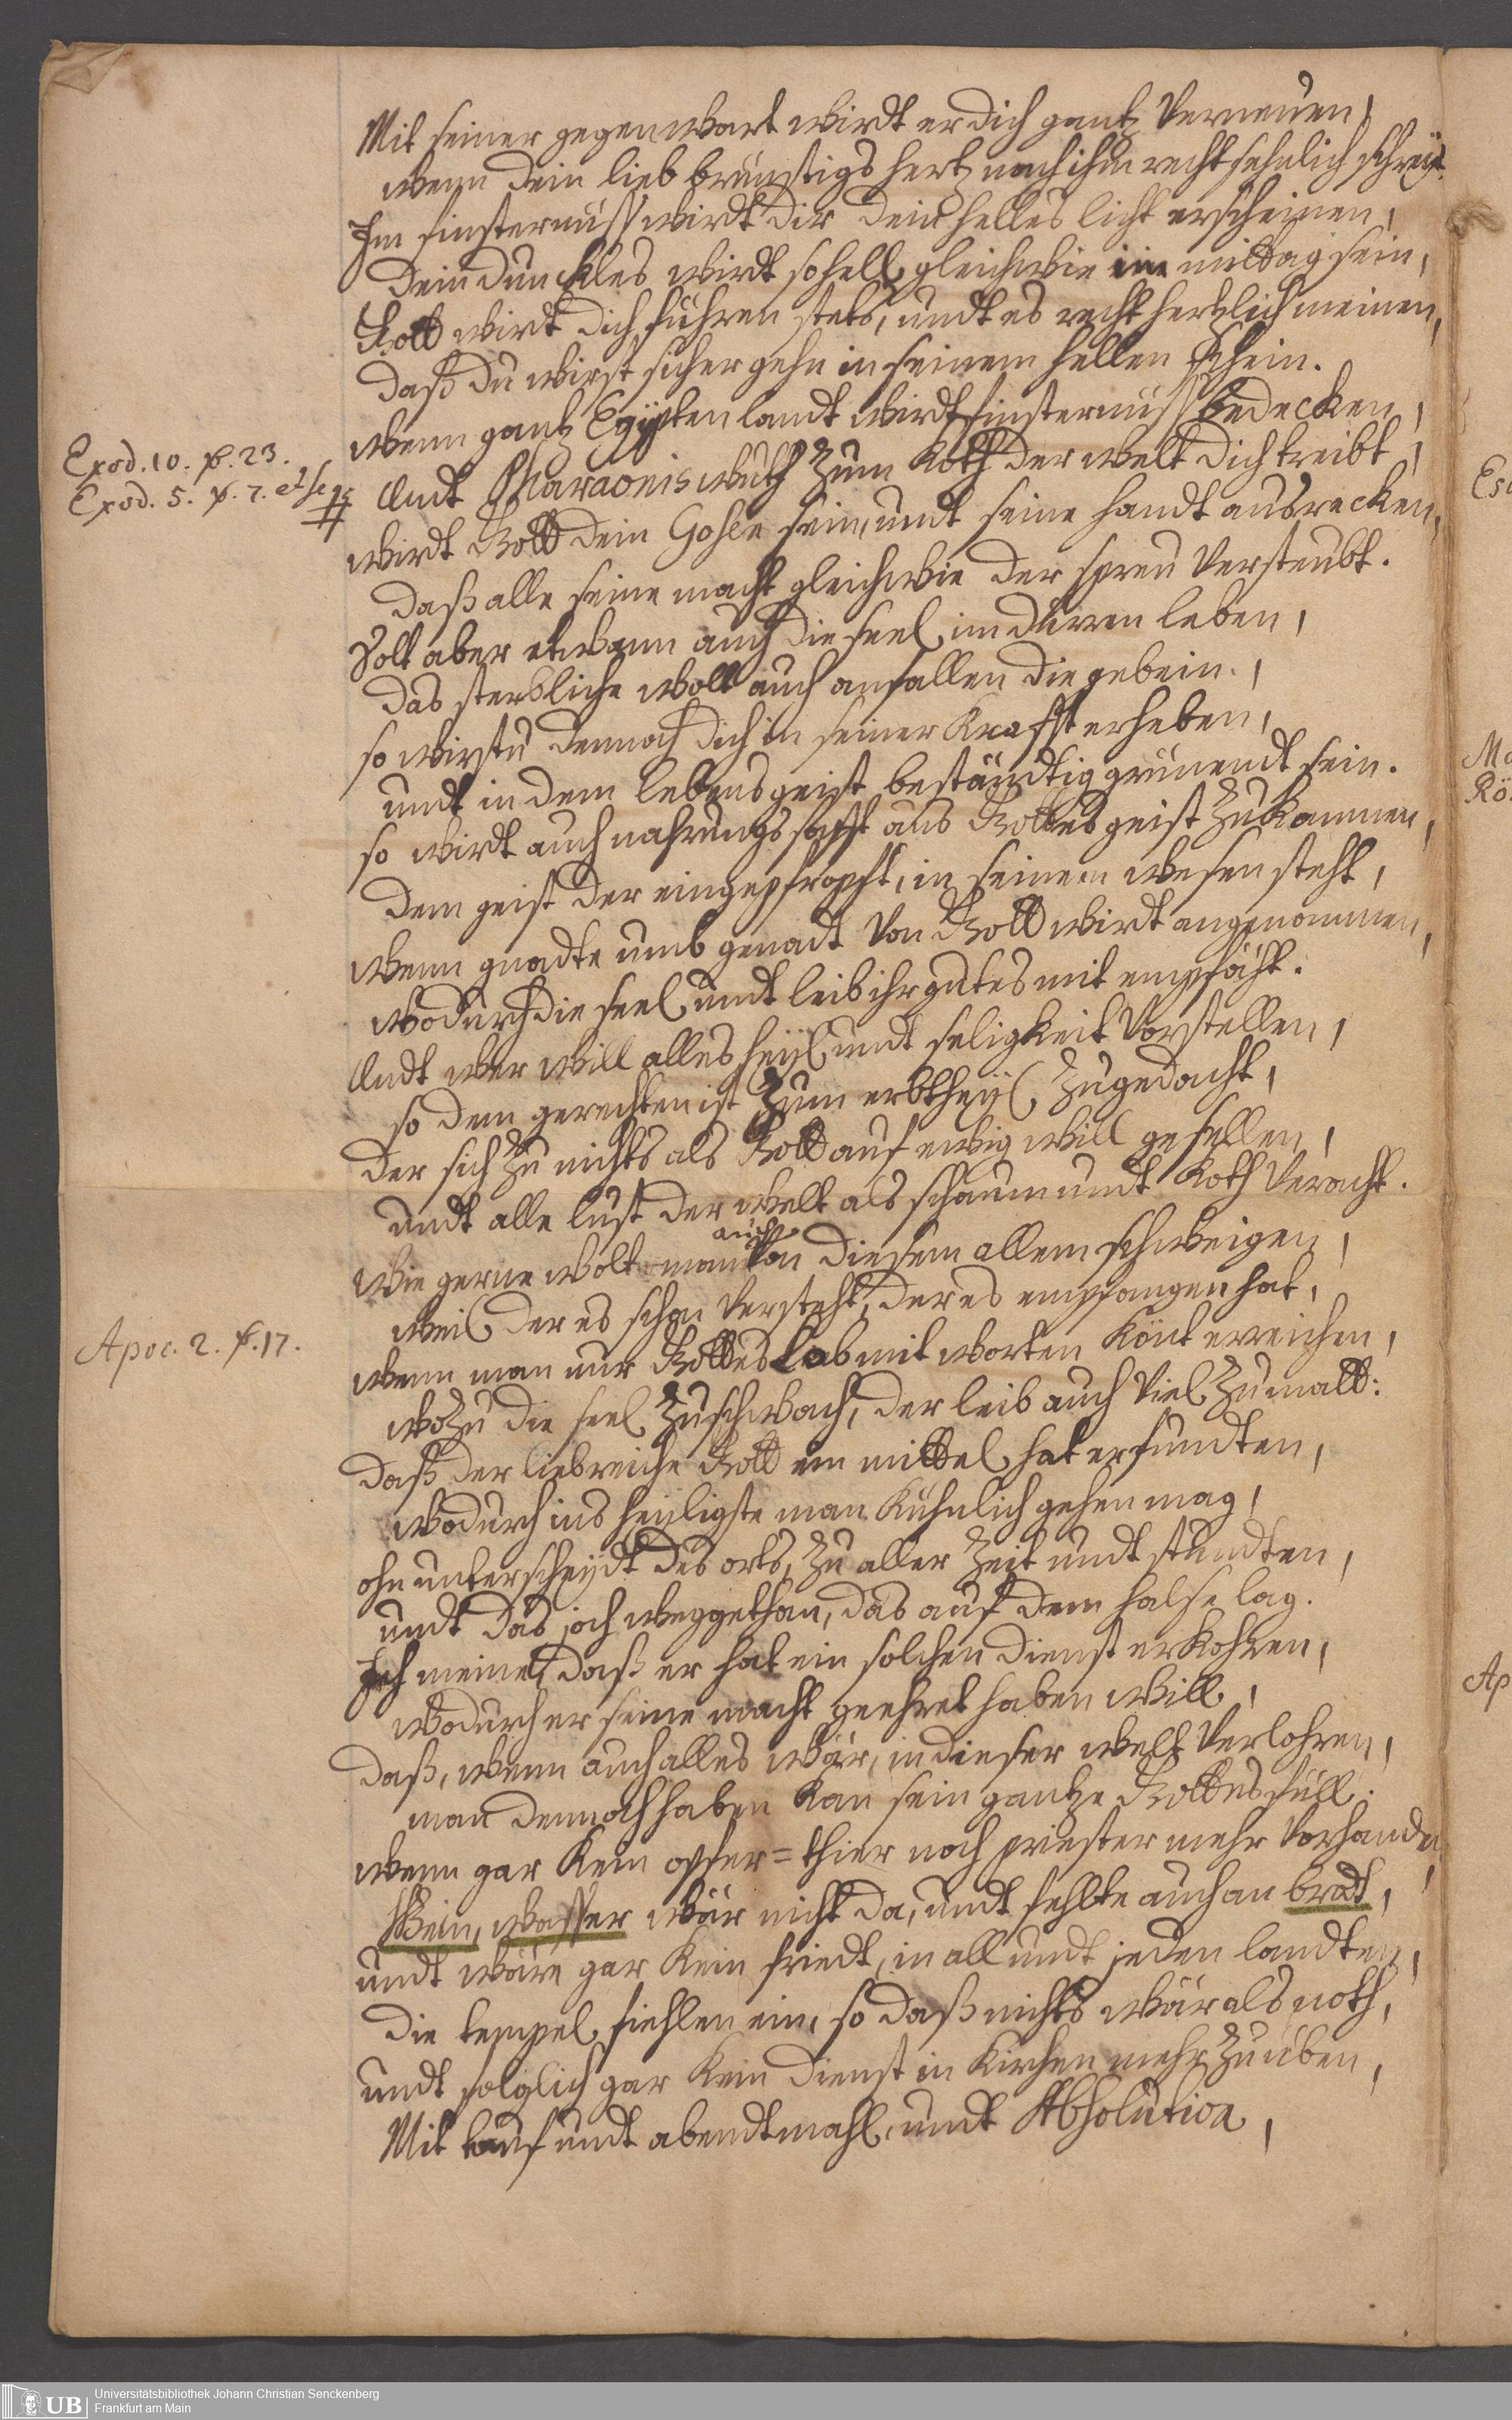 Mit seiner gegenwart wirdt er dich gantz Verneuen,
wenn dein lieb brünstigs hertz nach ihm recht sehnlich schreyt.
Im finsternuß wirdt dir dein helles licht erscheinen,
dein dunckles wirdt so hell, gleichwie im mittag sein,
Gott wirdt dich führen stets, undt es recht hertzlich meinen,
daß du wirst sicher gehn in seinem hellen schein.
wenn gantz Egypten landt wirdt finsternuß bedecken,
Exod. 10. ℣. 23.
Undt Pharaonis wuth zum Koth der welt dich treibt,
Exod. 5. ℣. 7. et seqs
wirdt Gott dein Gosen sein, undt seine handt ausrecken,
daß alle seine macht gleichwie der spreu Versteubt.
Solt aber etwann auch die seel im dürren leben,
das sterbliche wolt auch anfallen die gebein,
so wirstu dennoch dich in seiner Krafft erheben,
undt in dem lebens geist beständtig grünendt sein.
so wirdt auch nahrungs safft aus Gottes geist zukommen,
dem geist der eingepfropft, in seinem wesen steht,
wenn gnadte umb genadt Von Gott wirdt angenommen,
wodurch die seel undt leib ihr gutes mit empfäht.
Undt wer will alles heyl undt seligkeit Vorstellen,
so dem gerechten ist zum erbtheyl zugedacht,
der sich zu nichts als Gott auf ewig will gesellen,
undt alle lust der welt als schaum undt Koth Veracht.
wie gerne wolt man auch Von diesem allem schweigen,
weil der es schon Versteht, der es empfangen hat,
Apoc. 2. ℣. 17.
wenn man nur Gottes Lob mit worten Könt erreichen,
wozu die seel zu schwach, der leib auch Viel zu matt:
daß der liebreiche Gott ein mittel hat erfundten,
wodurch ins heyligste man Kühnlich gehen mag,
ohn unterscheydt des orts, zu aller zeit undt stundten,
undt das joch weggethan, das auf dem halse lag.
Ich meine, daß er hat ein solchen dienst erkohren,
wodurch er seine macht geehret haben will,
daß, wenn auch alles wär, in dieser welt Verlohren,
man dennoch haben Kan sein gantze Gottes füll:
wenn gar Kein opfer=thier noch priester mehr Vorhanden,
Wein, wasser wär nicht da, undt fehlte auch an brodt,
undt wäre gar Kein friedt, in all undt jeden landten,
die tempel fiehlen ein, so daß nichts wär als noth,
undt folglich gar Kein dienst in Kirchen mehr zu üben,
Mit tauf undt abendtmahl, undt Absolution,
UB
Universitätsbibliothek Johann Christian Senckenberg
Frankfurt am Main